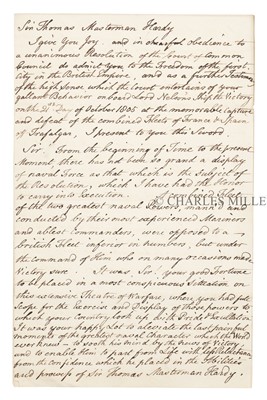 Sir Thomas Masterman Hardy
I give You Joy, and in chearful obedience to
a unanimous Resolution of the Court of Common
Council do admit You to the Freedom of the first
City in the British Empire, and as a further Testimony
of the high Sense which the Court entertains of Your
gallant Behavior on board Lord Nelson's Ship the Victory
on the 21st Day of October 1805 at the memorable Capture
and defeat of the combined Fleets of France & Spain
off Trafalgar, I present to You this Sword.
Sir. From the beginning of Time to the present
Moment, there has not been so grand a display
of naval Force as that which is the Subject of
the Resolution, which I have had the Honor
to carry into Execution. The Fleets
of the two greatest naval Powers, mann'd and
conducted by their most experienced Mariners
and ablest Commanders, were opposed to a
British Fleet inferior in numbers, but under
the command of Him who on many occasions made
Victory sure. It was, Sir, your good Fortune
to be placed in a most conspicuous Situation on
this extensive Theatre of Warfare, where you had full
Scope for the Exercise and Display of those powers of
which your Country look up with Pride & Exultation
It was your happy Lot to alleviate the last painful
moments of the greatest naval Character which the World
ever knew – to sooth his mind by the news of Victory
and to enable Him to part from Life with less Reluctance
from the Confidence which he placed in the Abilities
and prowess of Sir Thomas Masterman Hardy.
© CHARLES MILLE